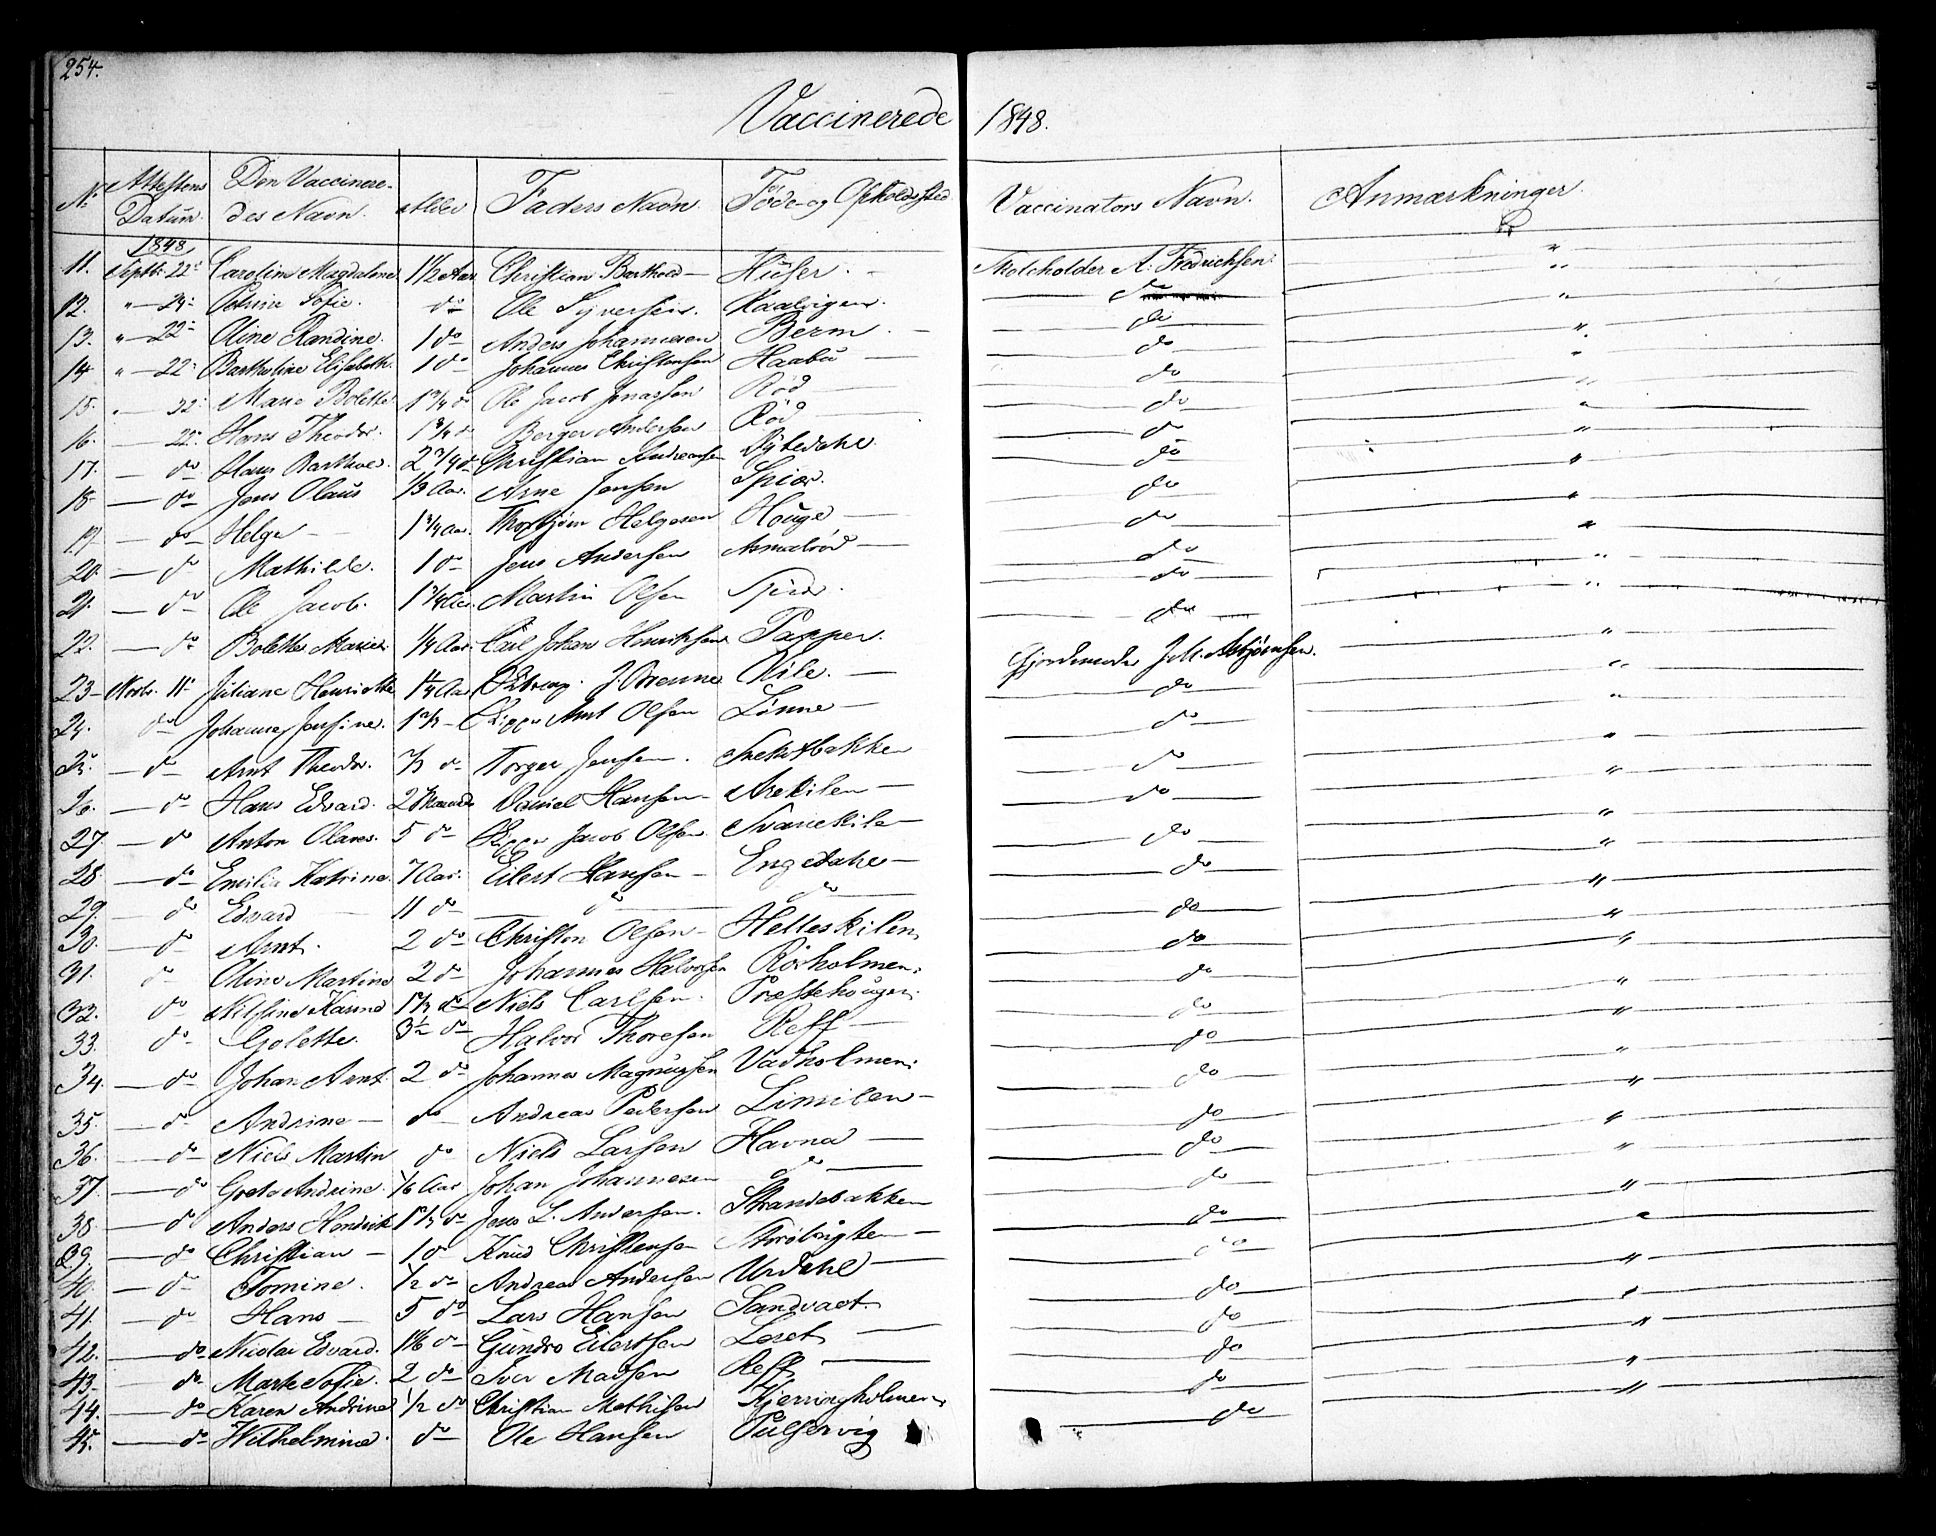 254.
Vaccinerede 1848.
No Attestens Datum. Den Vaccineredes Navn. Alder Faders Navn. Føde- og Opholdssted Vaccinators Navn. Anmærkninger.
1848
11. Septbr. 22 Caroline Magdalene 1 1/2 Aar Christian Barthold — Huser. — Skoleholder A. Fredrichsen. "
12. " — 24 Sofie. do Ole Syversen. "
13. " — 22 Oline Randine. 1 do Anders Johannesen Berm — do "
14. " — 22 Bartholine Elisabeth. 1 do Johannes Christensen Haabu — do "
15. " — 22 Marie Bolette. 1 3/4 do Ole Jacob Jonassen Rød — do "
16. — 22 Hans Theodor. 1 3/4 do Berger Andersen Rød — do "
17. — do Hans Barthold 2 3/4 do Christian Andreasen Rytedahl do "
18. — do Jens Olaus 1/3 Aar. Arne Jensen Spior. do "
19. — do Helge — 1 3/4 Aar. Thorbjørn Helgesen Houge — do "
20. — do Mathilde. 1 do Jens Andersen Asmalrød — do "
21. — do Ole Jacob. 1 3/4 Aar. Martin Olsen do "
22. — do Bolette Marie 1/4 Aar. Carl Johan Henriksen Papper. do "
23 — Novbr. 11 Juliane Henriette J. Kile. — Gjordemoder J. M. Asbjørnsen. "
24. do Johanne Josine. 1 2/3 — Skipper Arnt Olsen Lønne — do "
25. — do Arnt Theodor. 2/3 do Torger Jensen. do "
26. — do Hans Edvard. 2 Maaneder Daniel Hansen — Arekilen — do "
27. — do Anton Olaves. 5 do Skipper Jacob Olsen Svanekilen — do "
28. — do Emilie Katrine. 7 Aar. Eilert Hansen — Engedahl — do "
29. — do Edvard — 11 do do do — do "
30. — do Arnt. 2 do Christen Olsen — Helleskilen do "
31. do Oline Martine 2 do Johannes Halvorsen Rørholmen. do "
32. do Nilsine Karine 1 2/3 do Niels Carlsen. Prestehougen. do "
33. do Golette. 3 1/2 do Halvor Thoresen Reff — do "
34. — do Johan Arnt. 2 do Johannes Magnussen Vadholmen. do "
35. — do Andrine — do Andreas Pedersen Limilen — do "
36. — do Niels Martin do Niels Larsen Havna — do "
37. — do Grete Andrine. 1/6 Aar Johan Johannesen do — do "
38. — do Anders Hendrik 1 2/3 do Jens L. Andersen. Strandebakken do "
39. — do Christian — 1 do Knud Christensen — do "
40. — do Tomine. 1/2 do Andreas Andersen Urdahl — do "
41. — do Hans — 5 do Lars Hansen Sandvaet. do "
42. — do Nicolai Edvard. 1 1/6 do Gundro Eilertsen Løset — do "
43. do Marte Sofie. 2 do Iver Madsen Reff — do "
44. — do Karen Andrine 1/2 do Christian Mathisen Kjerringholmen do "
45. — do Wilhelmine do Ole Hansen Pulservig — do